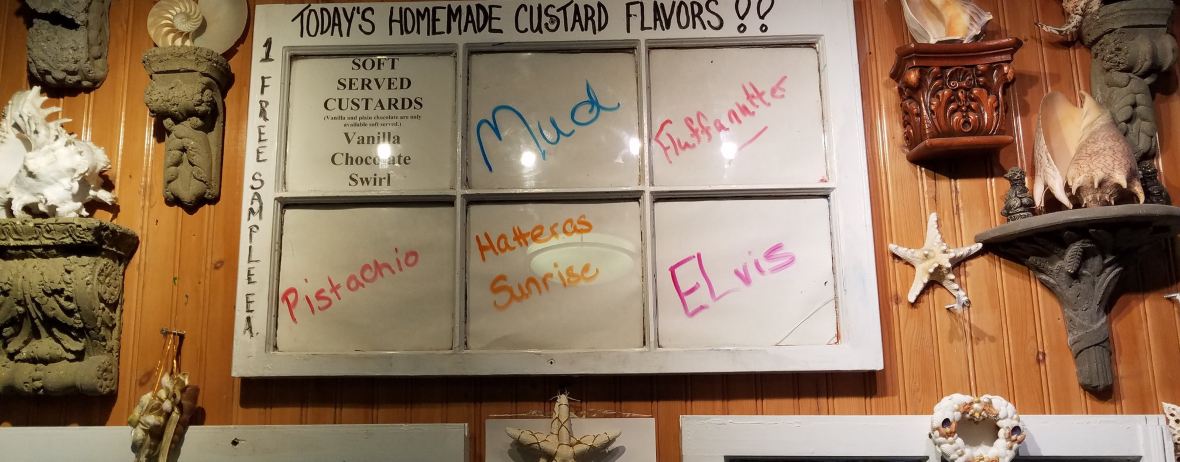 TODAY'S HOMEMADE CUSTARD FLAVORS !!
1 FREE SAMPLE EA.
SOFT
SERVED
CUSTARDS
(Vanilla and plain chocolate are only
available soft served.)
Vanilla
Chocolate
Swirl
Mud
Fluffanutter
Pistachio
Hatteras
Sunrise
ELvis